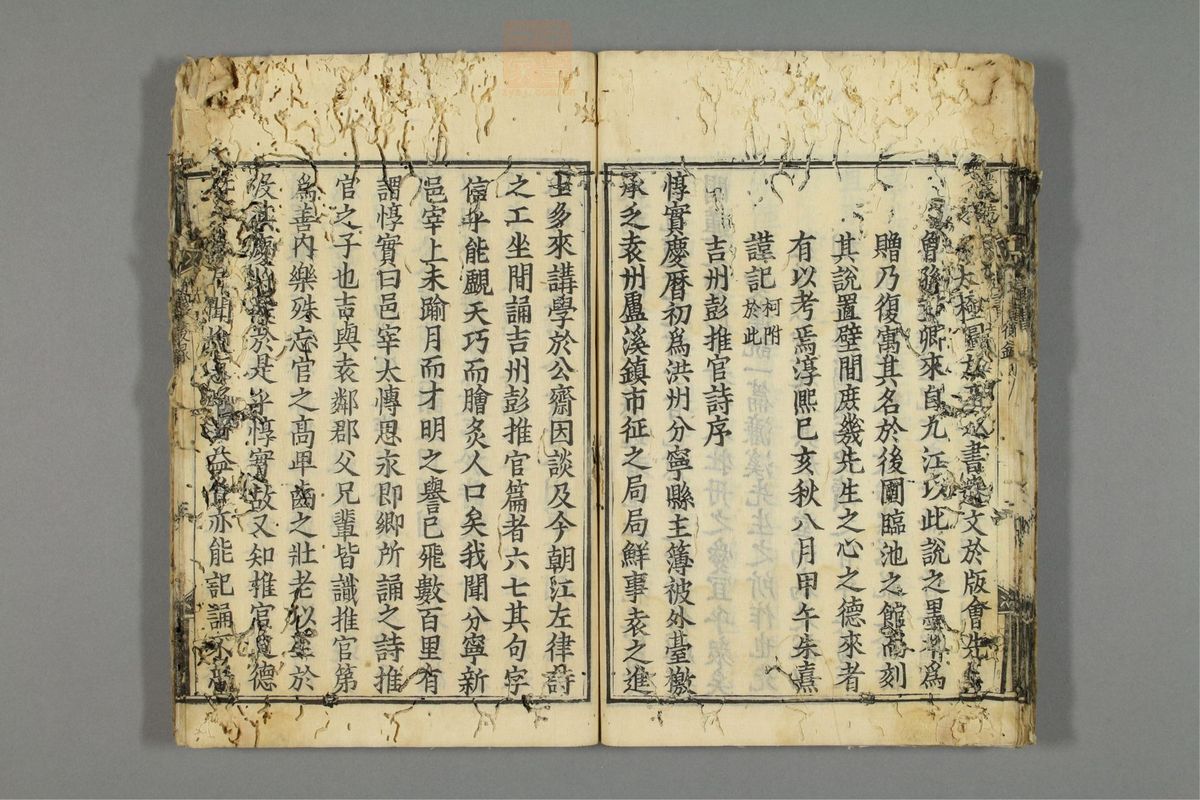 太極圖 書遺文於版會先生
曾孫 卿來自九江以此說之墨本爲
贈乃復寓其名於後圃臨池之館而刻
其說置壁間庶幾先生之心之德來者
有以考焉淳熙己亥秋八月甲午朱熹
謹記柯附於此
吉州彭推官詩序
惇實慶曆初爲洪州分寧縣主簿被外臺檄
承乏袁州盧溪鎮市征之局局鮮事袁之進
士多來講學於公齋因談及今朝江左律詩
之工坐間誦吉州彭推官篇者六七其句字
信乎能覰天巧而膾炙人口矣我聞分寧新
邑宰上未踰月而才明之譽已飛數百里有
謂惇實曰邑宰太傅思永即鄉所誦之詩推
官之子也吉與袁鄰郡父兄輩皆識推官第
爲善內樂殊忘官之高卑齒之壯老以至於
沒其慶 於是乎惇實故又知推官 德
聞 亦能記誦不